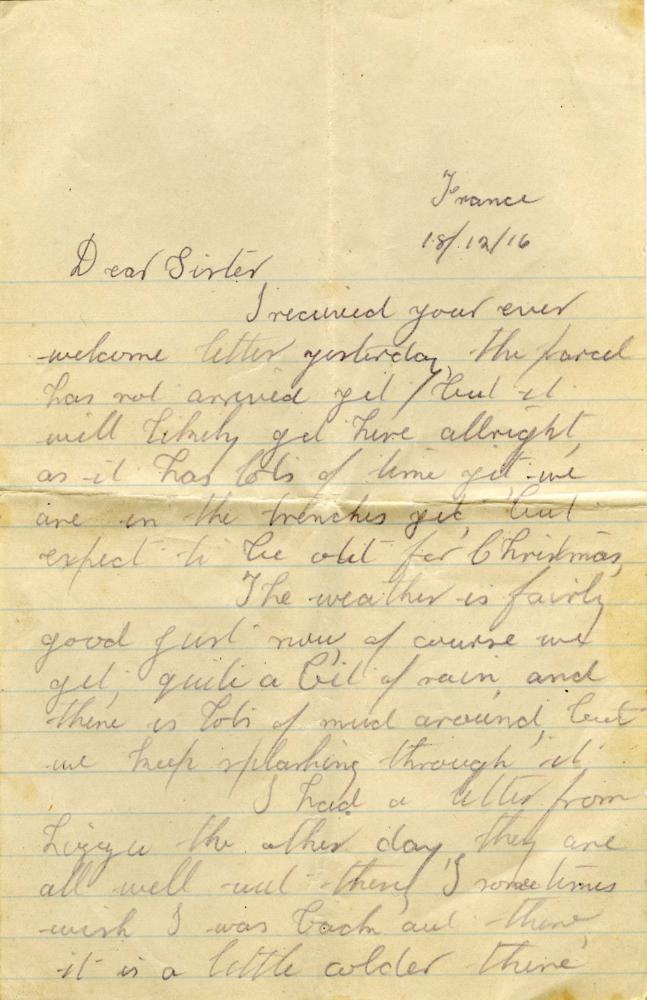 France
18/12/16
Dear Sister
I received your ever
welcome letter yesterday, the parcel
has not arrived yet, but it
will likely get here allright,
as it has lots of time yet, we
are in the trenches yet, but
expect to be out for Christmas,
The weather is fairly
good just now, of course we
get, quite a bit of rain, and
there is lots of mud around, but
we keep splashing through it
I had a letter from
Lizzie the other day, they are
all well out there, I sometimes
wish I was back out there,
it is a little colder there